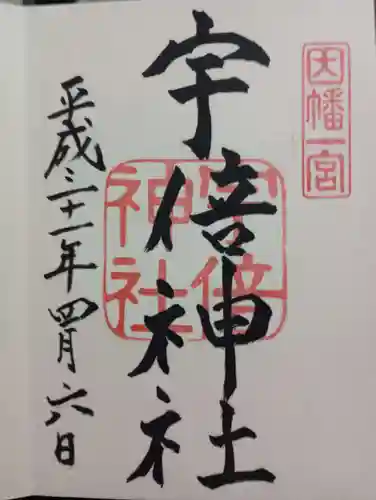 因幡一宮
宇倍神社
宇倍神社
平成三十一年四月六日